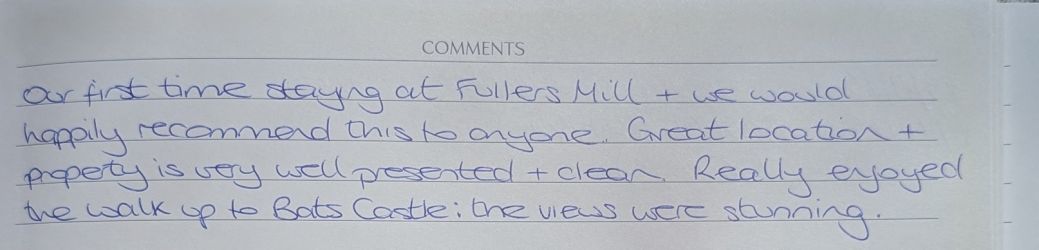 COMMENTS
Our first time staying at Fullers Mill + we would
happily recommend this to anyone. Great location +
property is very well presented + clean. Really enjoyed
the walk up to Bats Castle; the views were stunning.